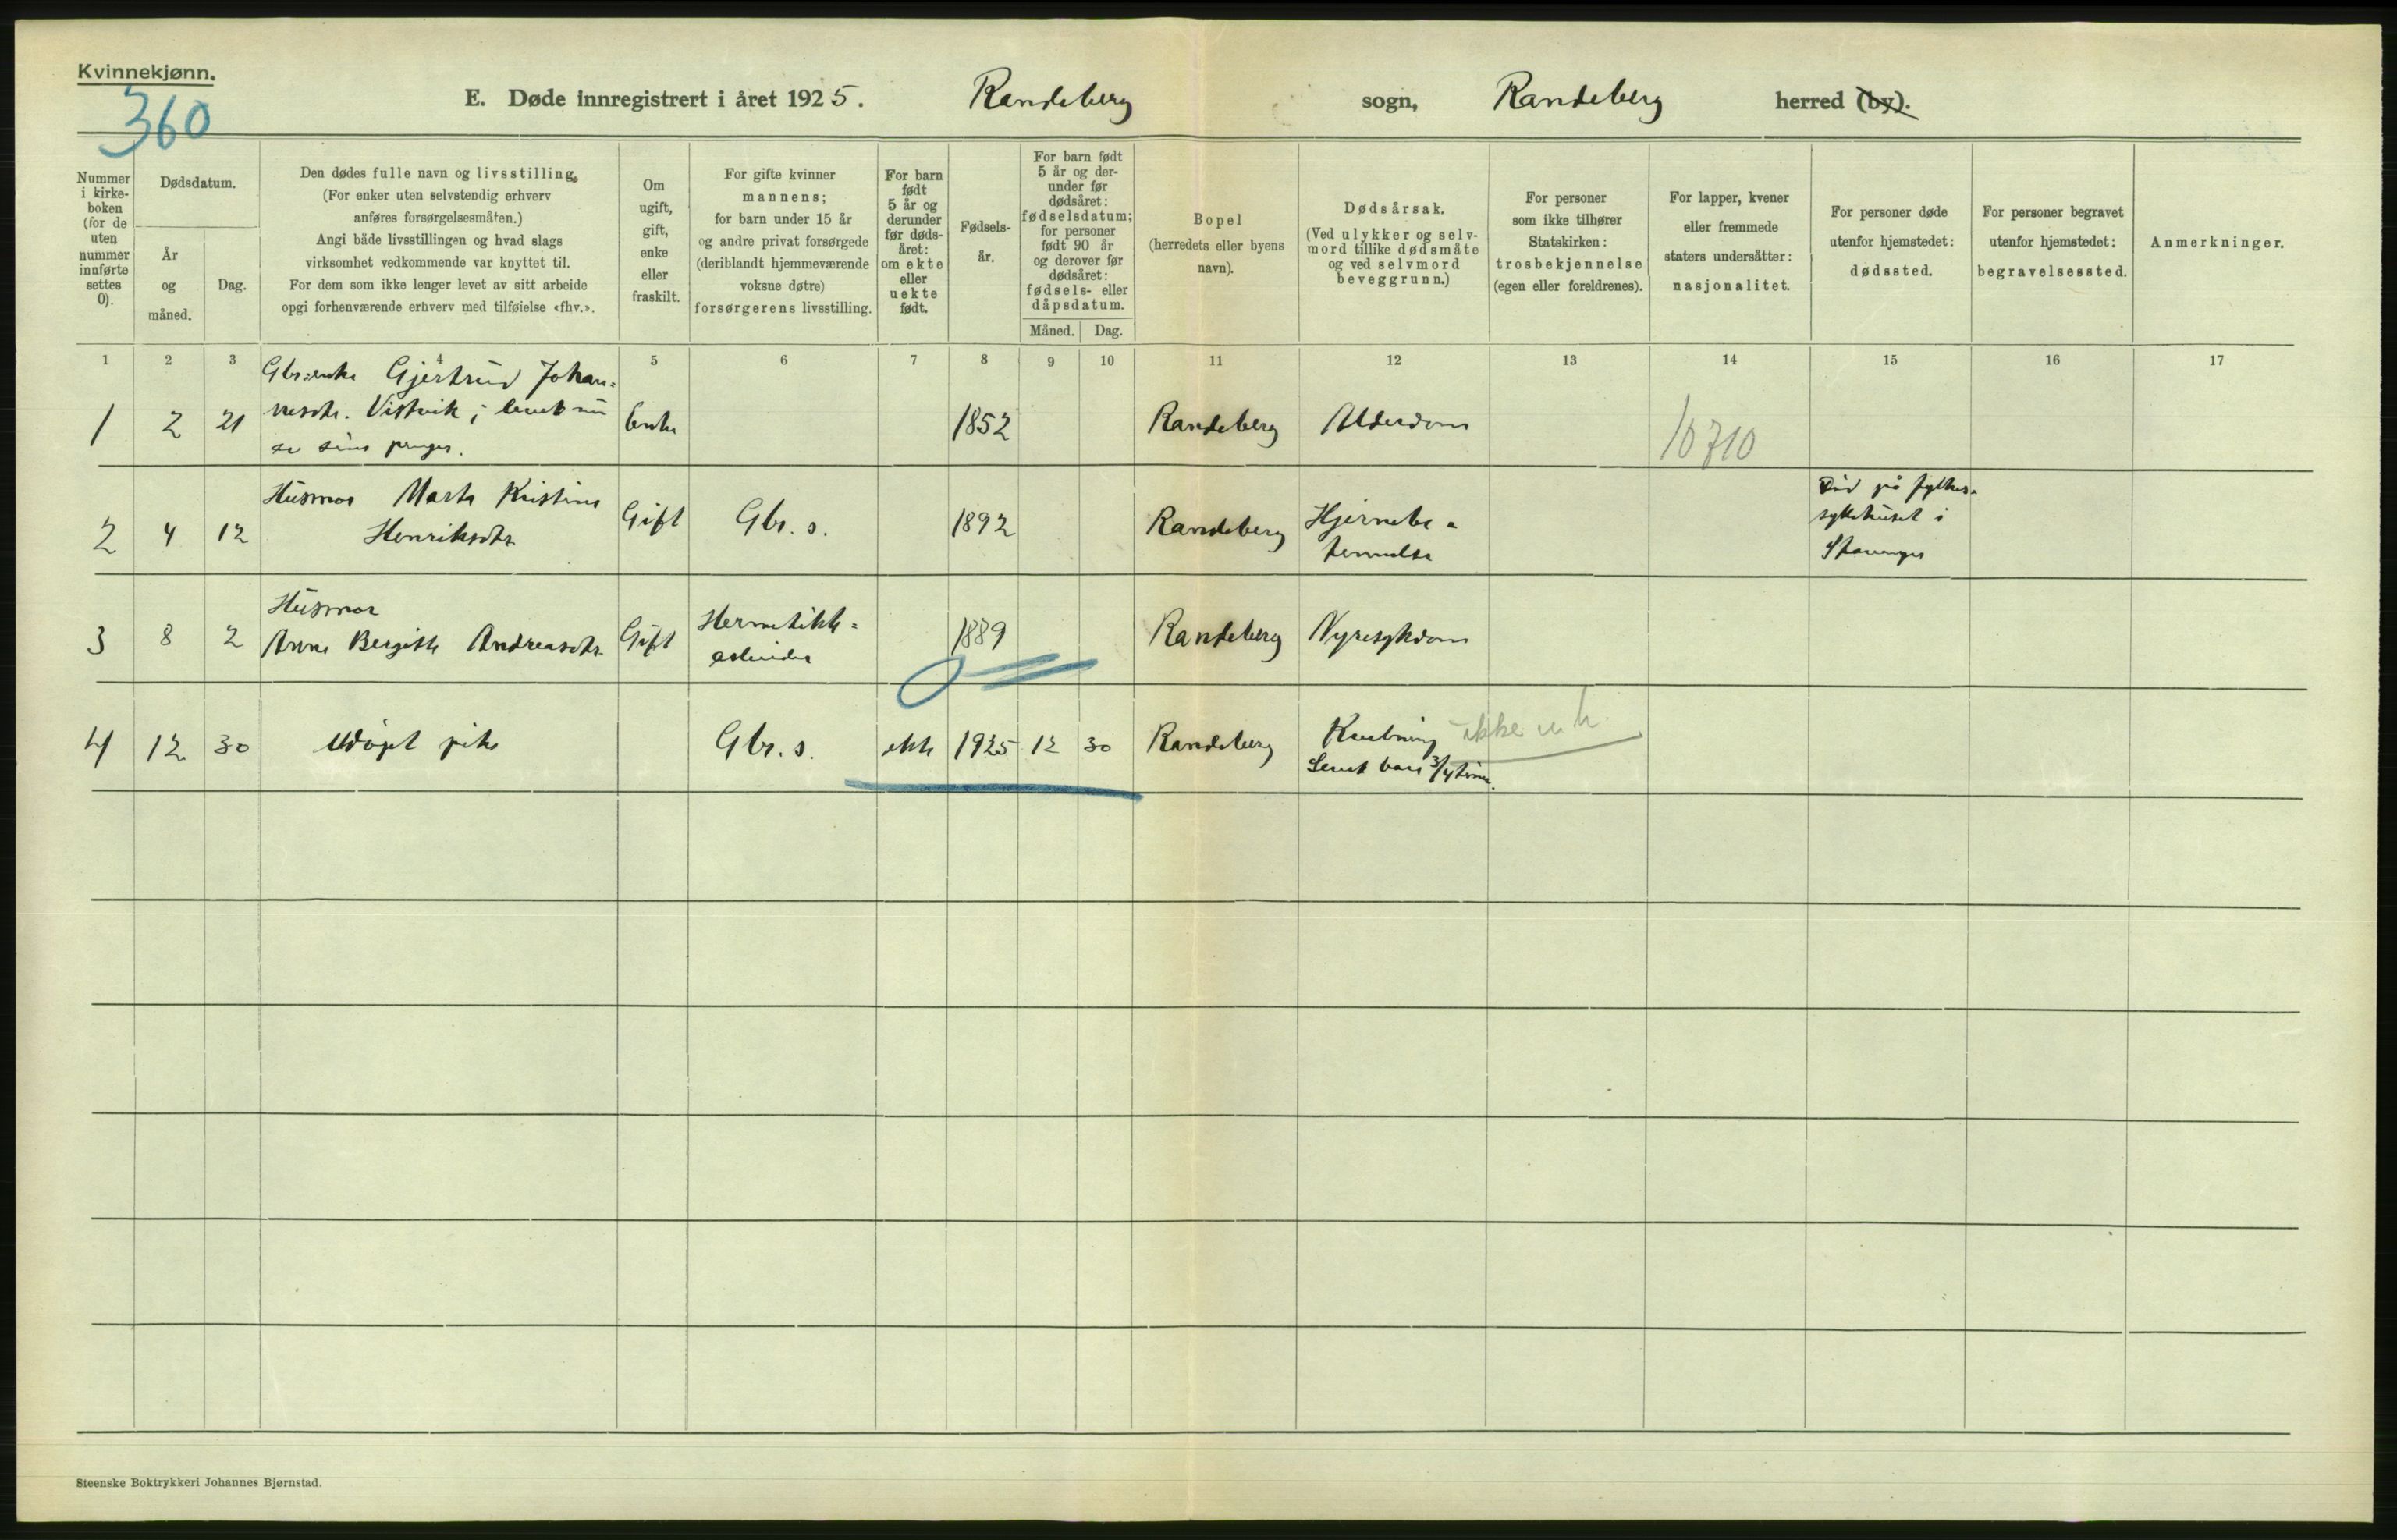 Kvinnekjønn.
360
E. Døde innregistrert i året 1925. Randeberg sogn, Randeberg herred (by).
Nummer
i kirke-
boken
(for de
uten
nummer
innførte
settes
0).
Dødsdatum.
År
og
måned.
Dag.
Den dødes fulle navn og livsstilling.
(For enker uten selvstendig erhverv
anføres forsørgelsesmåten.)
Angi både livsstillingen og hvad slags
virksomhet vedkommende var knyttet til.
For dem som ikke lenger levet av sitt arbeide
opgi forhenværende erhverv med tilføielse «fhv.».
Om
ugift,
gift,
enke
eller
fraskilt.
For gifte kvinner
mannens;
for barn under 15 år
og andre privat forsørgede
(deriblandt hjemmeværende
voksne døtre)
forsørgerens livsstilling.
For barn
født
5 år og
derunder
før døds-
året:
om ekte
eller
uekte
født.
Fødsels-
år.
For barn født
5 år og der-
under før
dødsåret:
fødselsdatum;
for personer
født 90 år
og derover før
dødsåret:
fødsels- eller
dåpsdatum.
Måned. Dag.
Bopel
(herredets eller byens
navn).
Dødsårsak.
(Ved ulykker og selv-
mord tillike dødsmåte
og ved selvmord
beveggrunn.)
For personer
som ikke tilhører
Statskirken:
trosbekjennelse
(egen eller foreldrenes).
For lapper, kvener
eller fremmede
staters undersåtter:
nasjonalitet.
For personer døde
utenfor hjemstedet:
dødssted.
For personer begravet
utenfor hjemstedet:
begravelsessted.
Anmerkninger.
1 2 3 4 5 6 7 8 9 10 11 12 13 14 15 16 17
Gbr.enke Gjertrud Johan=
nesdtr. Vistvik; levet
av sine penger.
1 2 21 Enke 1852 Randeberg Alderdom
10710
Husmor Marta Kristine
Henriksdtr.
2 4 12 Gift Gbr. s. 1892 Randeberg Hjernebe=
tennelse
Død på fylkes-
sykehuset i
Stavanger
Husmor
3 8 2 Anna Bergitte Andreasdtr. Gift Hermetikk=
arbeider
1889 Randeberg Nyresykdom
4 12 30 Udøpt pike Gbr. s. ekte 1925 12 30 Randeberg Kvelning ikke
Levet bare 3/4 time.
Steenske Boktrykkeri Johannes Bjørnstad.